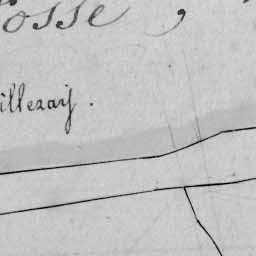 osse,
illeray.